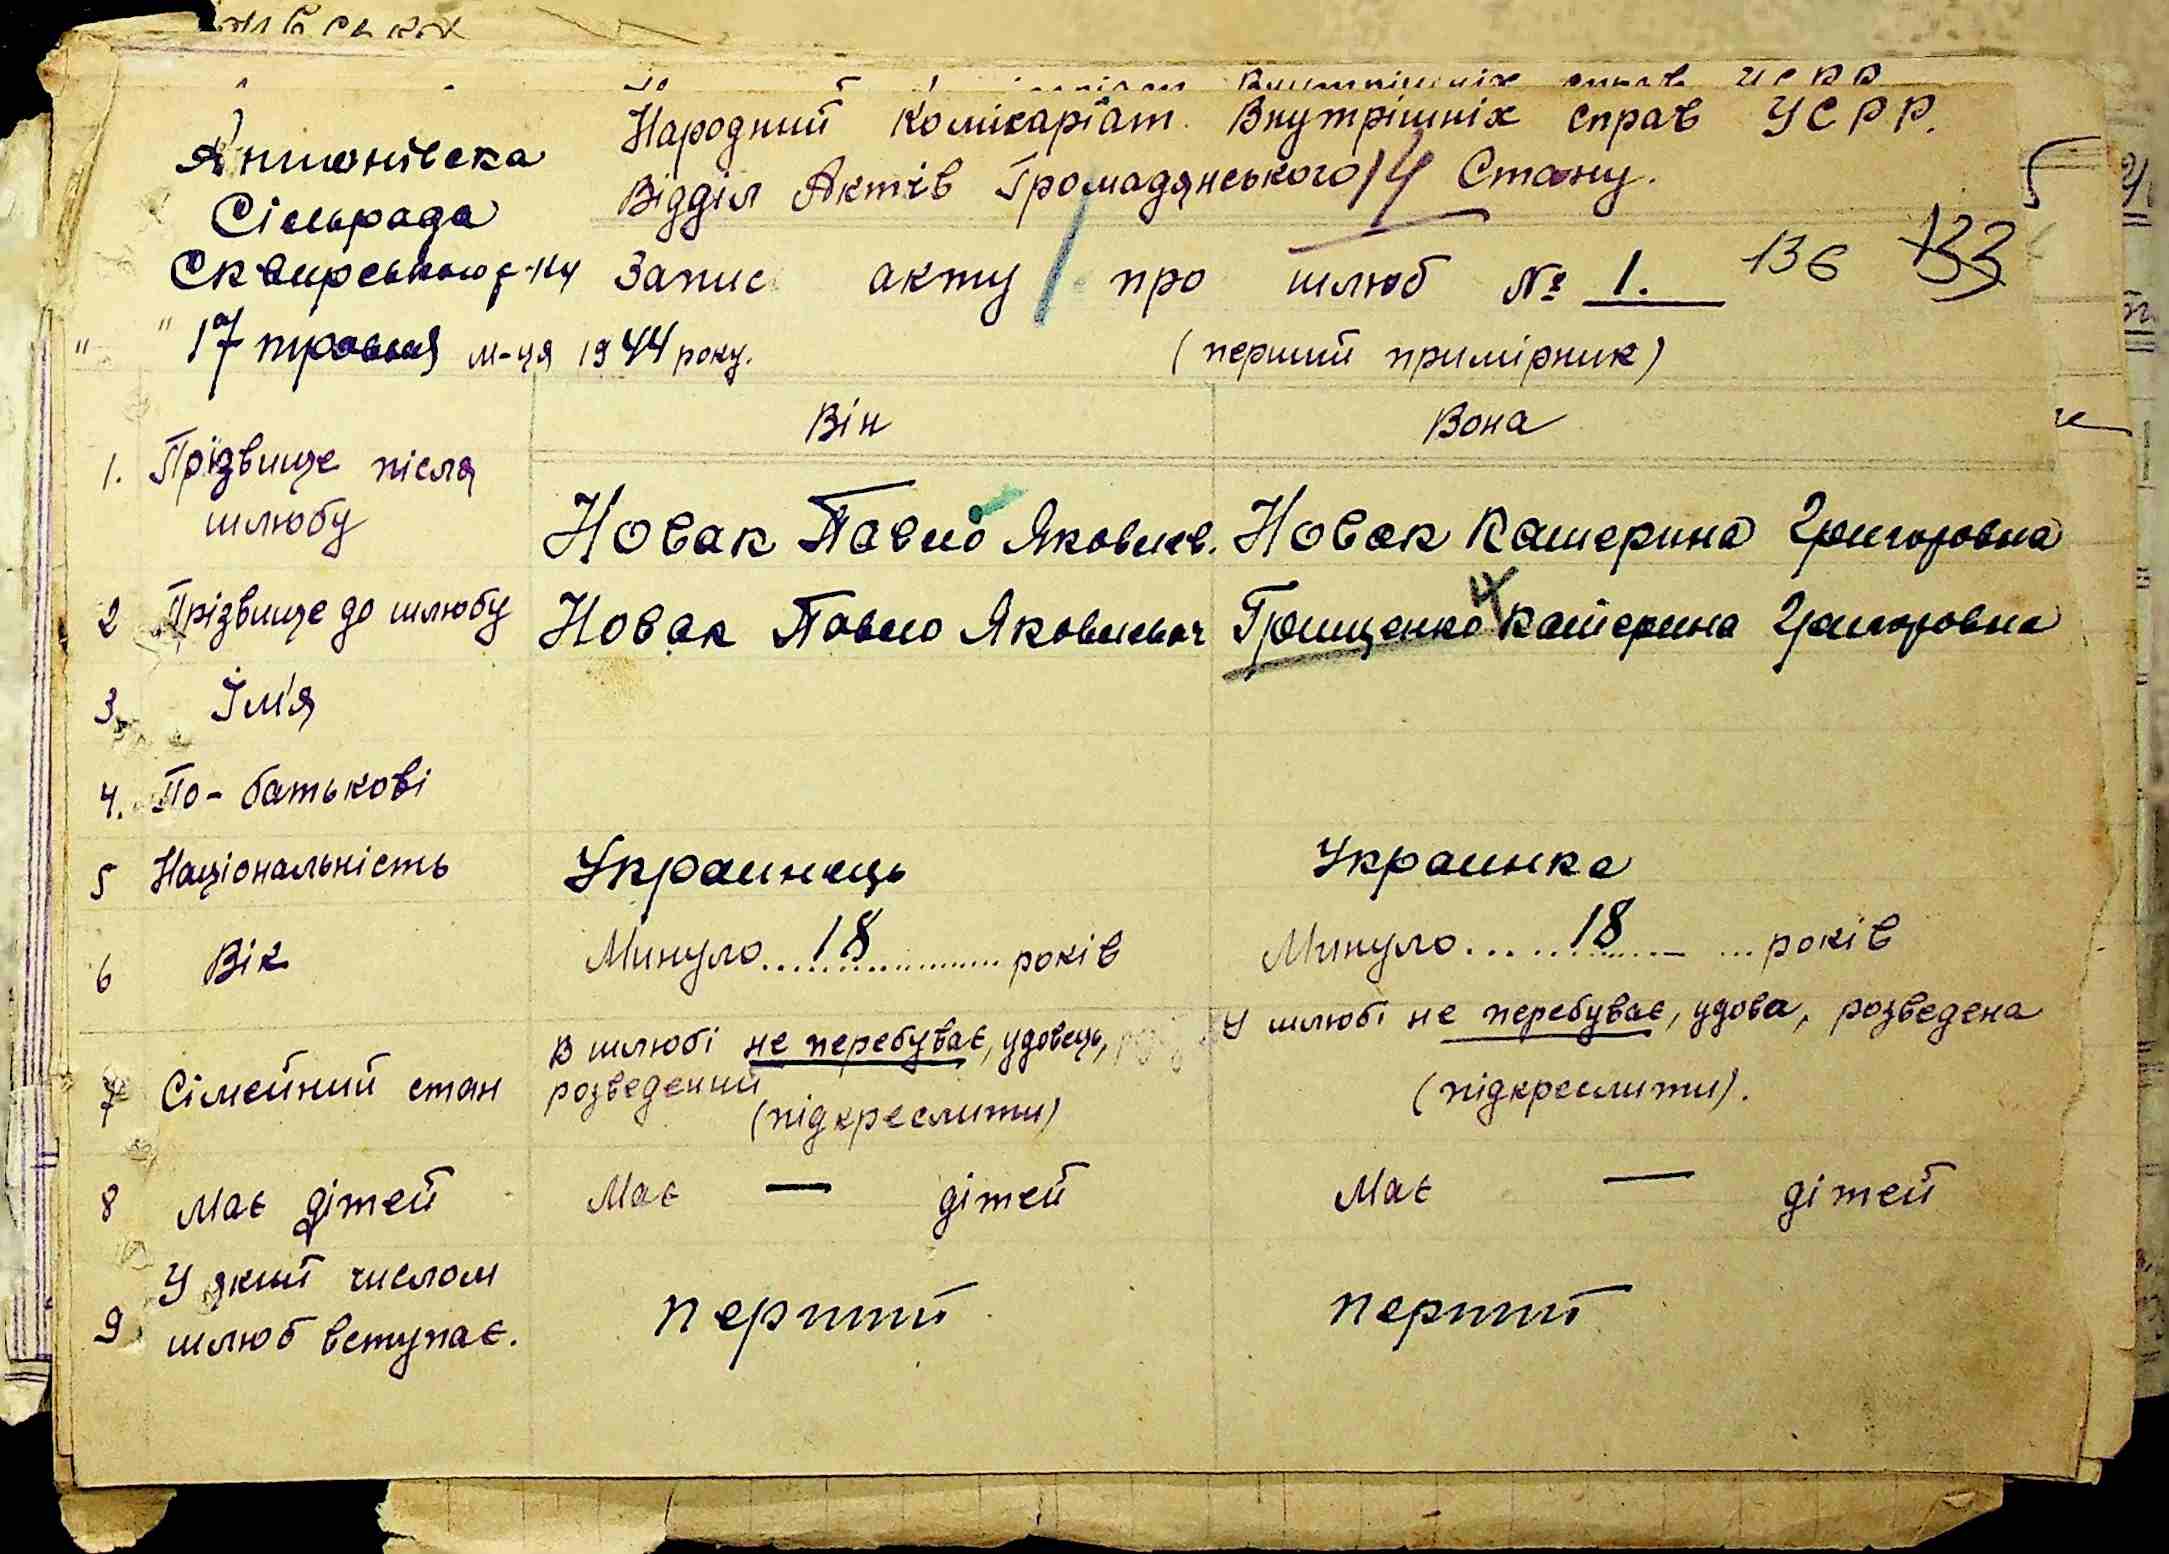 Народний Комікаріат Внутрішніх справ УСРР.
Відділ Актів Громадянського 14 Стану.
Антонівска
Сільрада
Сквирського р-ну
Запис акту про шлюб № 1. 136 133
" " 17 травня м-ця 1944 року.
(перший примірник)
Він Вона
1. Прізвище після
шлюбу
Новак Павло Яковлев. Новак Катерина Григоровна
2 Прізвище до шлюбу Новак Павло Яковлевич Грищенко Катерина Григоровна
3. Ім'я
4. По-батькові
5 Національність Украинець Украинка
6 Вік Минуло 18 років Минуло 18 років
7 Сімейний стан
В шлюбі не перебуває, удовець,
розведений
(підкреслити)
У шлюбі не перебуває, удова, розведена
(підкреслити).
8 Має дітей Має — дітей Має — дітей
9 У який числом
шлюб вступає.
перший перший